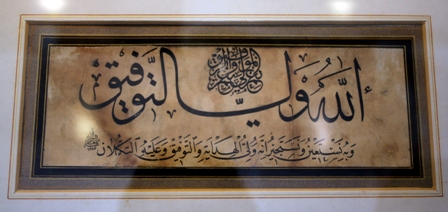 الله ولي التوفيق
وبه نستعين ونستخير انه ولي الهداية والتوفيق وعليه التكلان